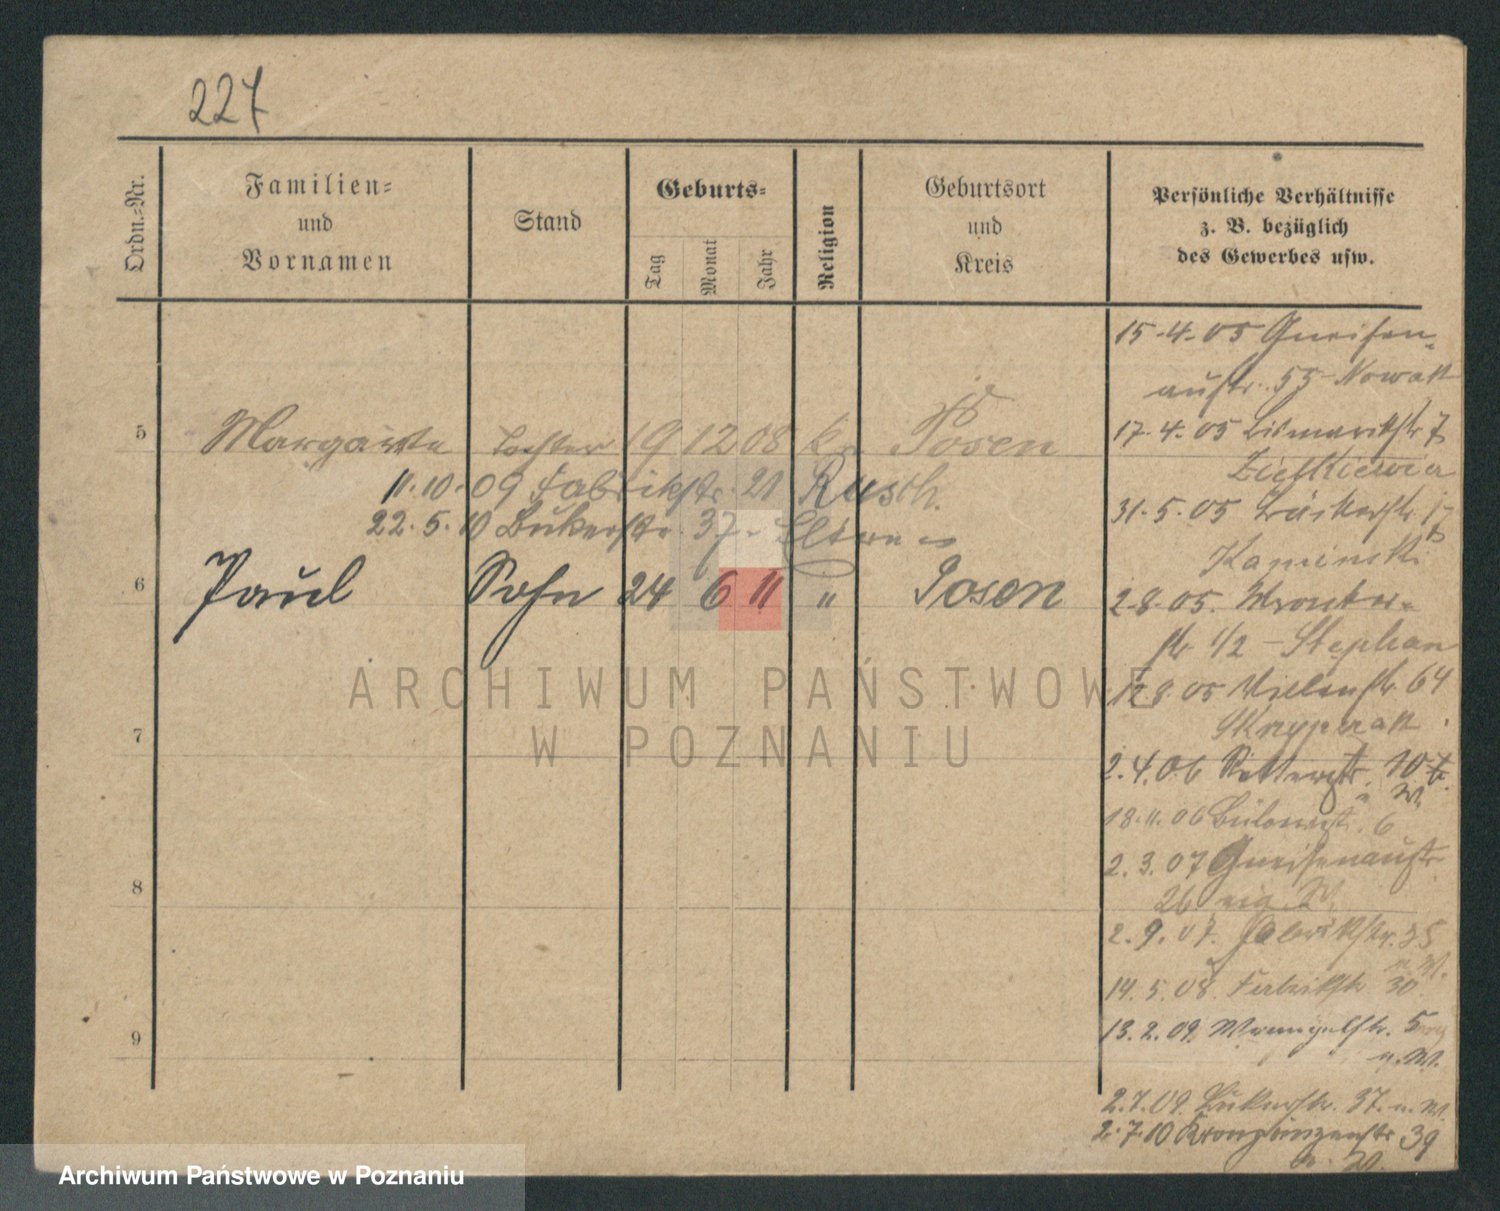 227
Ordn.-Nr.
Familien-
und
Vornamen
Stand
Geburts-
Tag
Monat
Jahr
Religion
Geburtsort
und
Kreis
Persönliche Verhältnisse
z. B. bezüglich
des Gewerbes usw.
5 Margarete Tochter 19 12 08 k. Posen
11.10.09 Fabrikstr. 21 Rusch.
22.5.10 Bukerstr. 37 - Eltern
6 Paul Sohn 24 6 11 " Posen
7
8
9
15-4-05 Gneisen-
austr. 55 Nowak
17-4-05 Bismarckstr 7
31-5-05
Kaminski
2-8-05. Wronker-
str 1/2 - Stephan
12.8.05 64
2.4.06 Ritterstr. 10
18.11.06 Bülowstr. 6
2.3.07 Gneisenaustr.
26 eig. W.
2.9.07. Fabrikstr. 35
14.5.08 Fabrikstr 30
13.2.09. Wrangelstr. 5
u. W.
2.7.09. Bukerstr. 37. u. W.
2.7.10 Kronprinzenstr 39
u. W.
ARCHIWUM PAŃSTWOWE
W POZNANIU
Archiwum Państwowe w Poznaniu